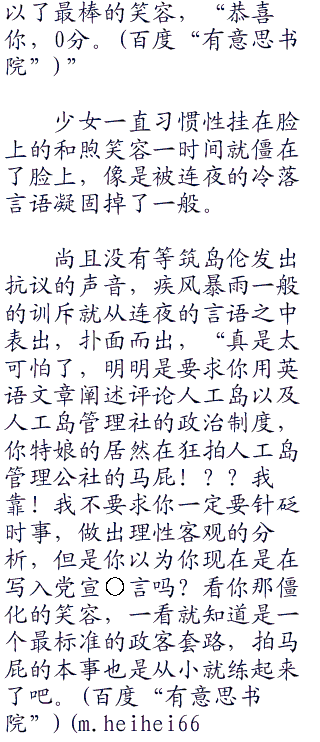 以了最棒的笑容，“恭喜
你，0分。(百度“有意思书
院”)”
少女一直习惯性挂在脸
上的和煦笑容一时间就僵在
了脸上，像是被连夜的冷落
言语凝固掉了一般。
尚且没有等筑岛伦发出
抗议的声音，疾风暴雨一般
的训斥就从连夜的言语之中
表出，扑面而出，“真是太
可怕了，明明是要求你用英
语文章阐述评论人工岛以及
人工岛管理社的政治制度，
你特娘的居然在狂拍人工岛
管理公社的马屁！？？我
靠！我不要求你一定要针砭
时事，做出理性客观的分
析，但是你以为你现在是在
写入党宣○言吗？看你那僵
化的笑容，一看就知道是一
个最标准的政客套路，拍马
屁的本事也是从小就练起来
了吧。(百度“有意思书
院”)(m.heihei66